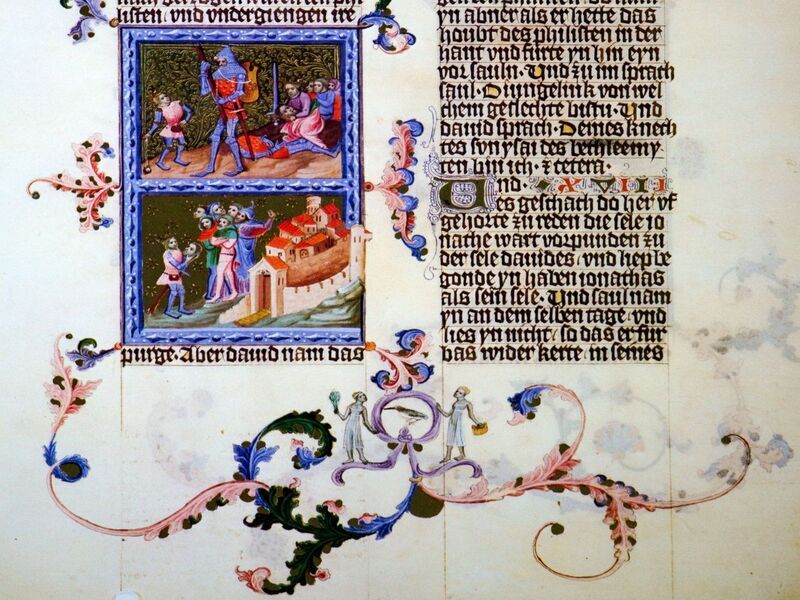 listen vnd vndergiengen ire
purge. Aber dauid nam das
yn abner als er hette das
houbt des philisten in der
hant vnd furte yn hin eyn
vor sauln. Vnd zu im sprach
saul. O iungelink von wel
chem geslechte bistu. Vnd
dauid sprach. Deines knech
tes sun ysai des bethleemy
ten bin ich. & cetera.
Vnd XVIII
es geschach do her vf
gehorte zu reden die sele io
nathe wart vorpunden zu
der sele dauides, vnd liep be
gonde yn haben ionathas
als sein sele. Vnd saul nam
yn an dem selben tage, vnd
lies yn nicht, so das er fur
bas wider kerte, in seines